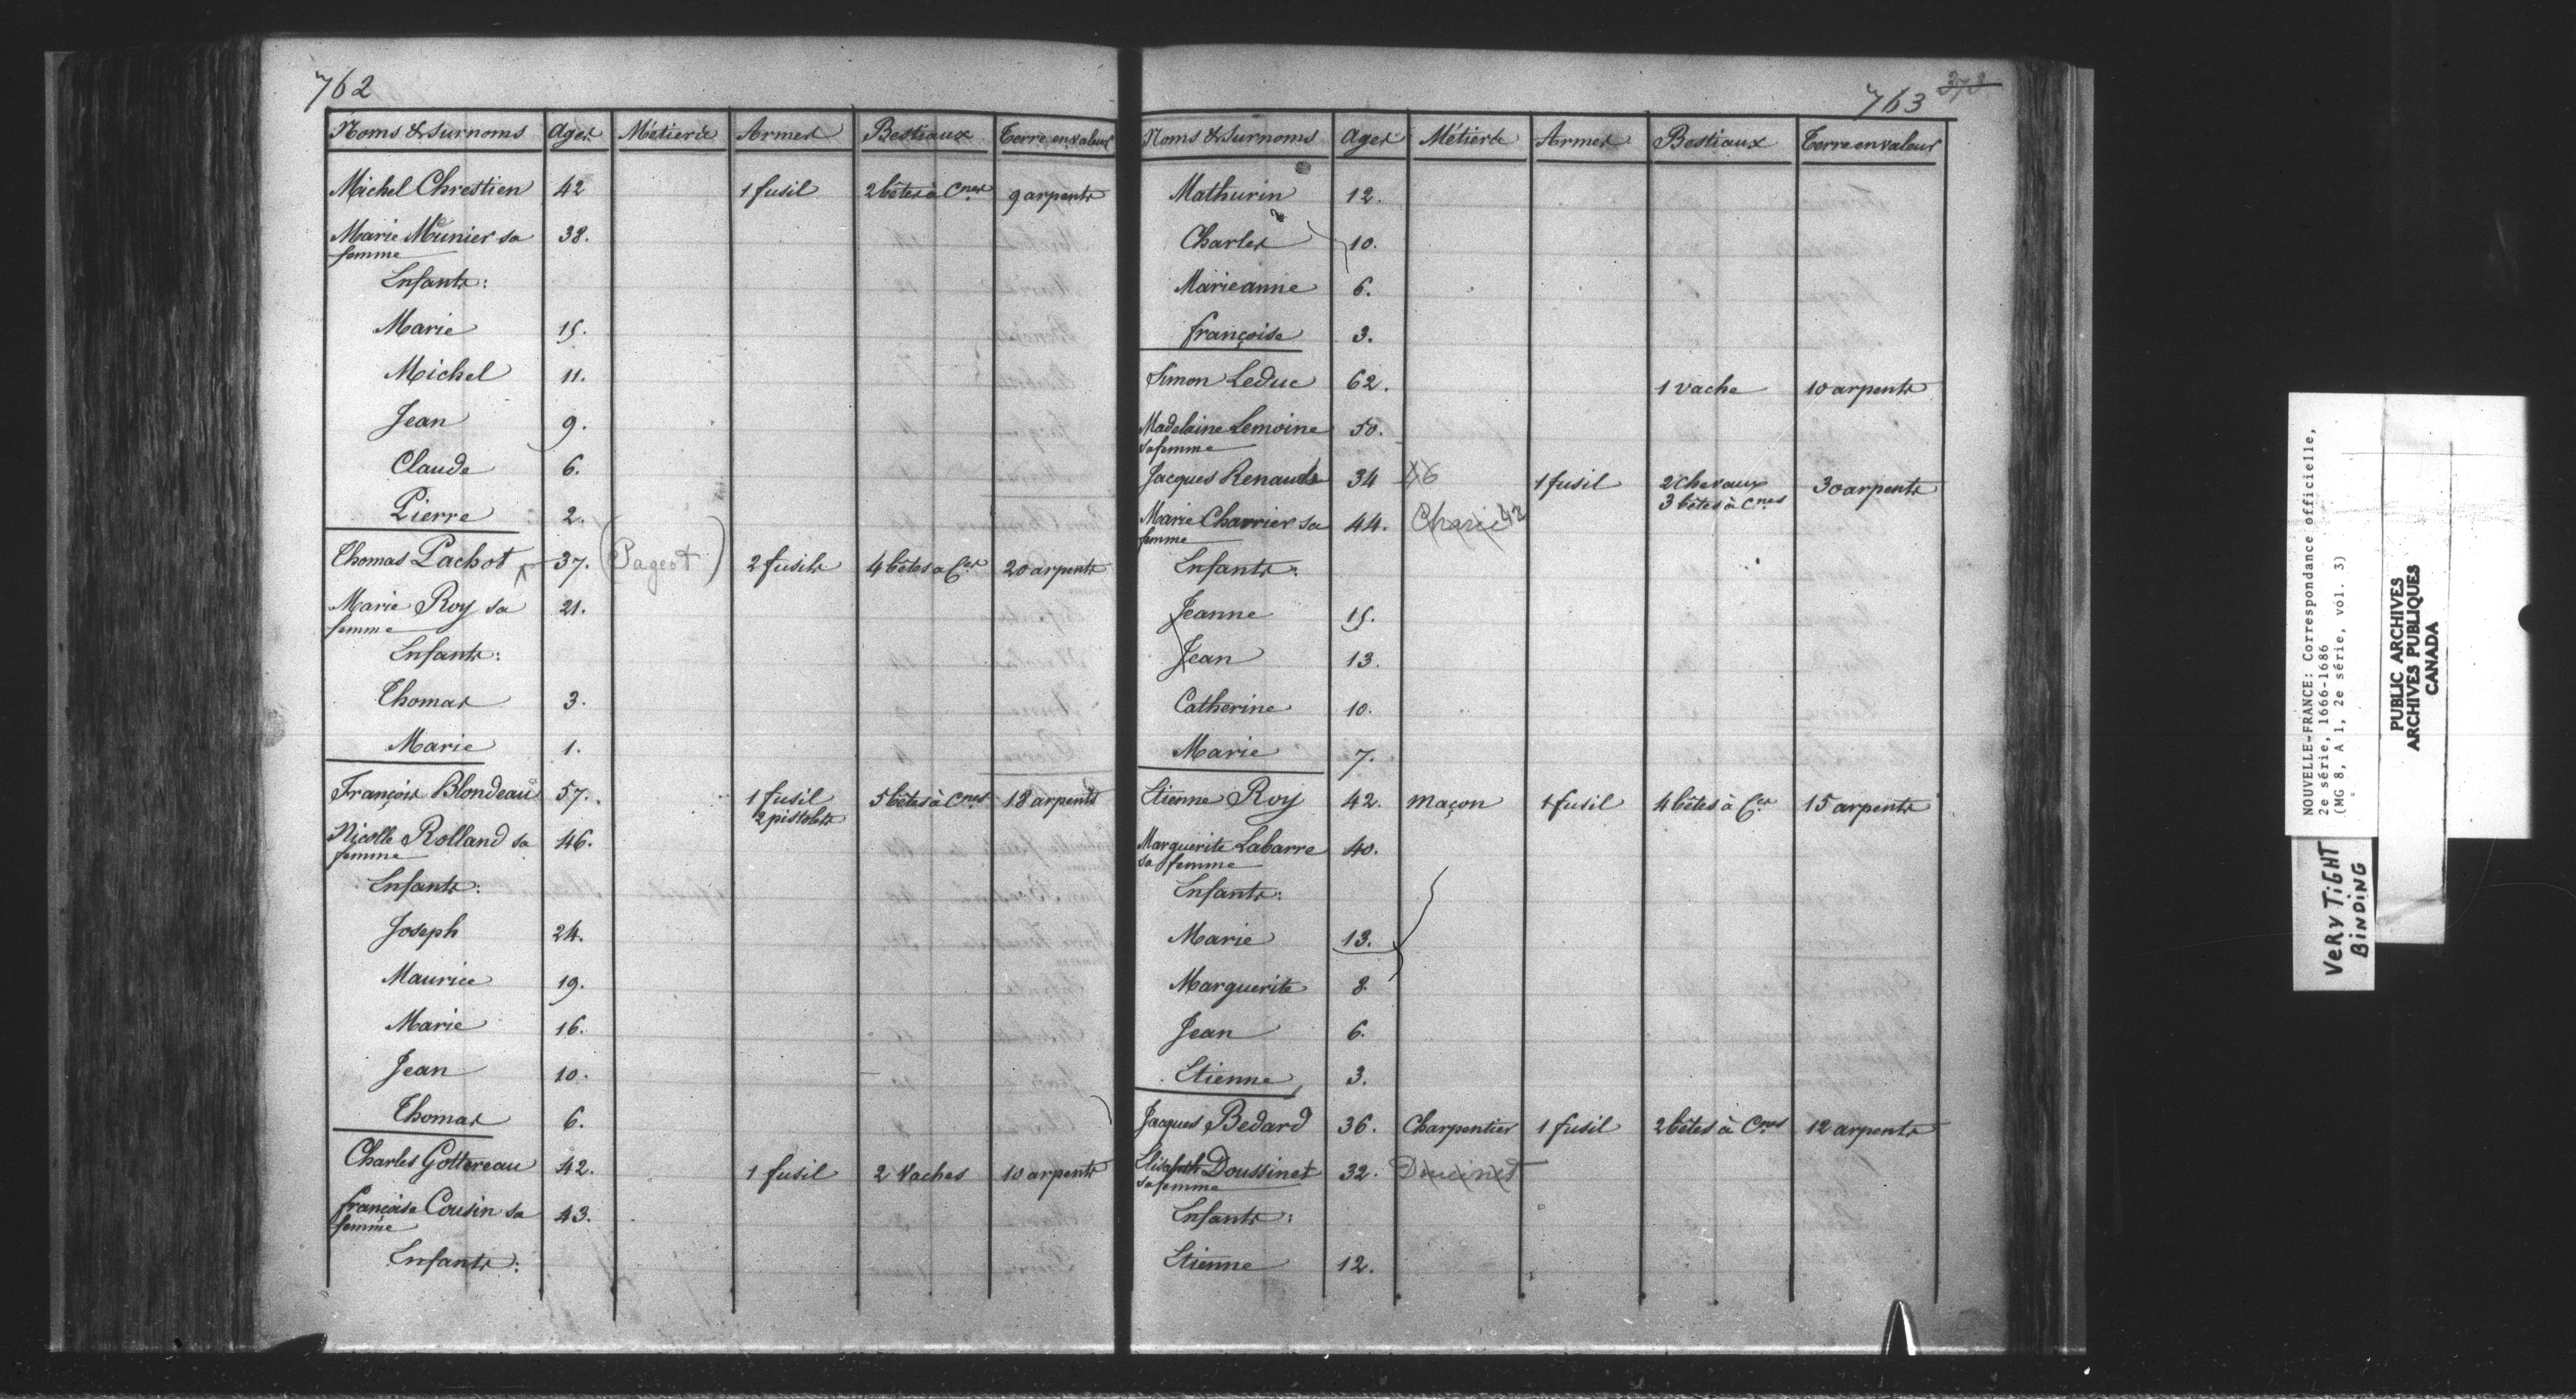 762
Noms & Surnoms Ages Métiers Armes Bestiaux Terre en valeur
Michel Chrestien 42 1 fusil 2 bêtes à Cnes 9 arpents
Marie Meunier sa 38.
femme
Enfants:
Marie 15.
Michel 11.
Jean 9.
Claude 6.
Pierre 2.
Thomas Pachot 37. (Pageot) 2 fusils 4 bêtes à Ces 20 arpents
Marie Roy sa 21.
femme
Enfants:
Thomas 3.
Marie 1.
François Blondeau 57. 1 fusil 5 bêtes à Cnes 18 arpents
2 pistolets
Nicolle Rolland sa 46.
femme
Enfants:
Joseph 24.
Maurice 19.
Marie 16.
Jean 10.
Thomas 6.
Charles Gottereau 42. 1 fusil 2 Vaches 10 arpents
françoise Cousin sa 43.
femme
Enfants:
763
Noms & Surnoms Ages Métiers Armes Bestiaux Terre en valeur
Mathurin 12.
Charles 10.
Marie anne 6.
françoise 3.
Simon Leduc 62. 1 vache 10 arpents
Madelaine Lemoine 50.
sa femme
Jacques Renauds 34 46 1 fusil 2 chevaux 30 arpents
3 bêtes à Cnes
Marie Charrier sa 44. 42
femme
Enfants:
Jeanne 15.
Jean 13.
Catherine 10.
Marie 7.
Etienne Roy 42. maçon 1 fusil 4 bêtes à Ces 15 arpents
Marguerite Labarre 40.
sa femme
Enfants:
Marie 13.
Marguerite 8.
Jean 6.
Etienne 3.
Jacques Bedard 36. Charpentier 1 fusil 2 bêtes à Cnes 12 arpents
Elisabeth Doussinet 32. Doucinet
sa femme
Enfants:
Etienne 12.
NOUVELLE-FRANCE: Correspondance officielle,
2e série, 1666-1686
(MG 8, A 1, 2e série, vol. 3)
PUBLIC ARCHIVES
ARCHIVES PUBLIQUES
CANADA
VERY TIGHT
BINDING